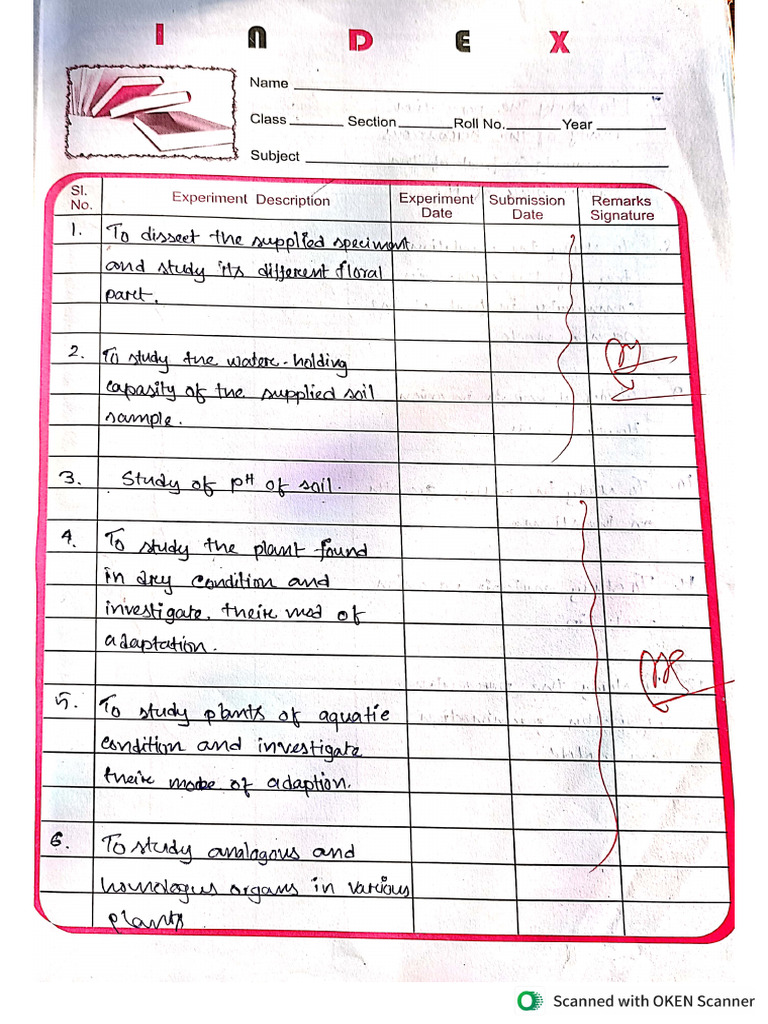 INDEX
Name
Class Section Roll No. Year
Subject
Sl. No. Experiment Description Experiment Date Submission Date Remarks Signature
1. To dissect the supplied speciment
and study its different floral
part.
2. To study the water-holding
capasity of the supplied soil
sample.
3. Study of pH of soil.
4. To study the plant found
in dry condition and
investigate. their mod of
adaptation.
5. To study plants of aquatic
condition and investigate
their mode of adaption.
6. To study analogous and
homologus organs in various
plants.
Scanned with OKEN Scanner